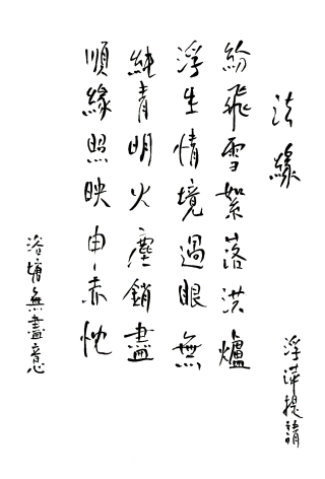 法緣
浮萍提請
紛飛雪絮落洪爐
浮生情境過眼無
純青明火塵銷盡
順緣照映申赤忱
浴塘無盡意